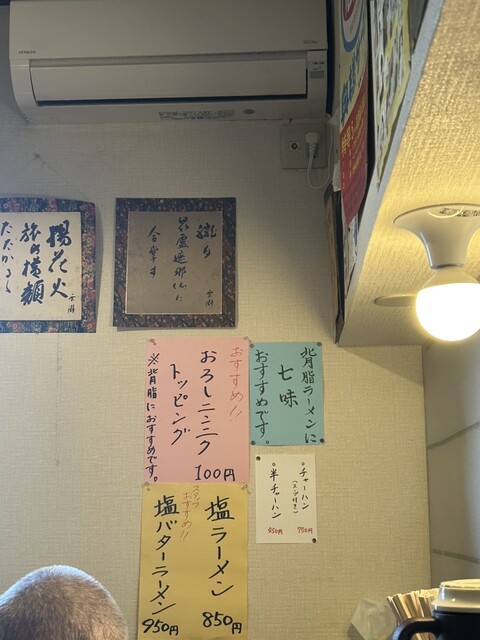 HITACHI
揚花火
旅の横顔
たたかるく
合掌す
おすすめ!!
おろしニンニク
トッピング
※背脂におすすめです。
100円
背脂ラーメンに
七味
おすすめです。
・チャーハン
(スープ付き)
750円
・半チャーハン
450円
塩ラーメン
850円
スタッフ
おすすめ!!
塩バターラーメン
950円